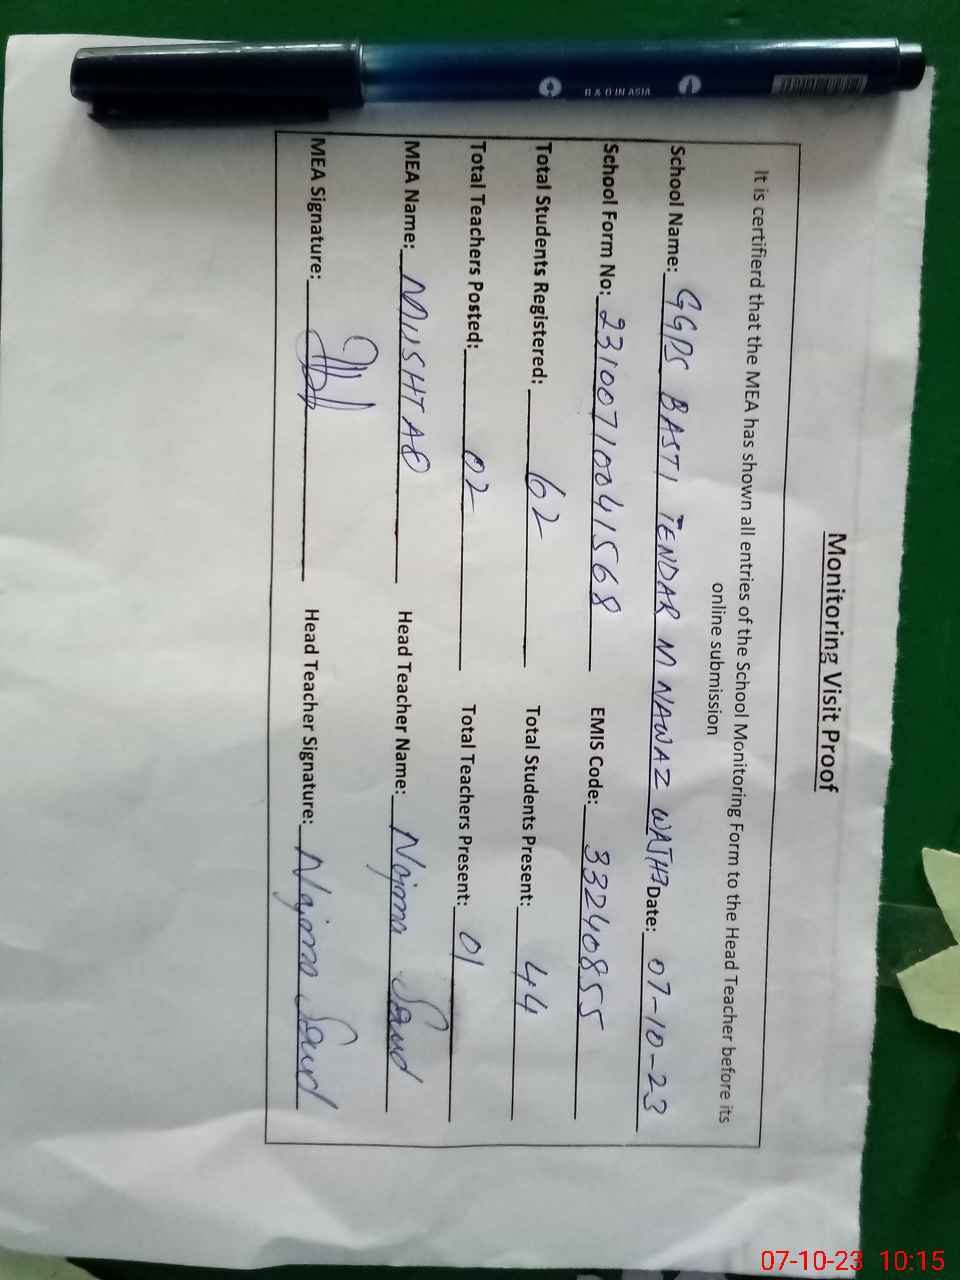 Monitoring Visit Proof
It is certifierd that the MEA has shown all entries of the School Monitoring Form to the Head Teacher before its
online submission
School Name: GGPS BASTI TENDAR M NAWAZ Date: 07-10-23
School Form No: 23100710041568 EMIS Code: 33240855
Total Students Registered: 62 Total Students Present: 44
Total Teachers Posted: 02 Total Teachers Present: 01
MEA Name: MUSHTAQ Head Teacher Name: Najma Saud
MEA Signature: Head Teacher Signature: Najma Saud
R & D IN ASIA
07-10-23 10:15